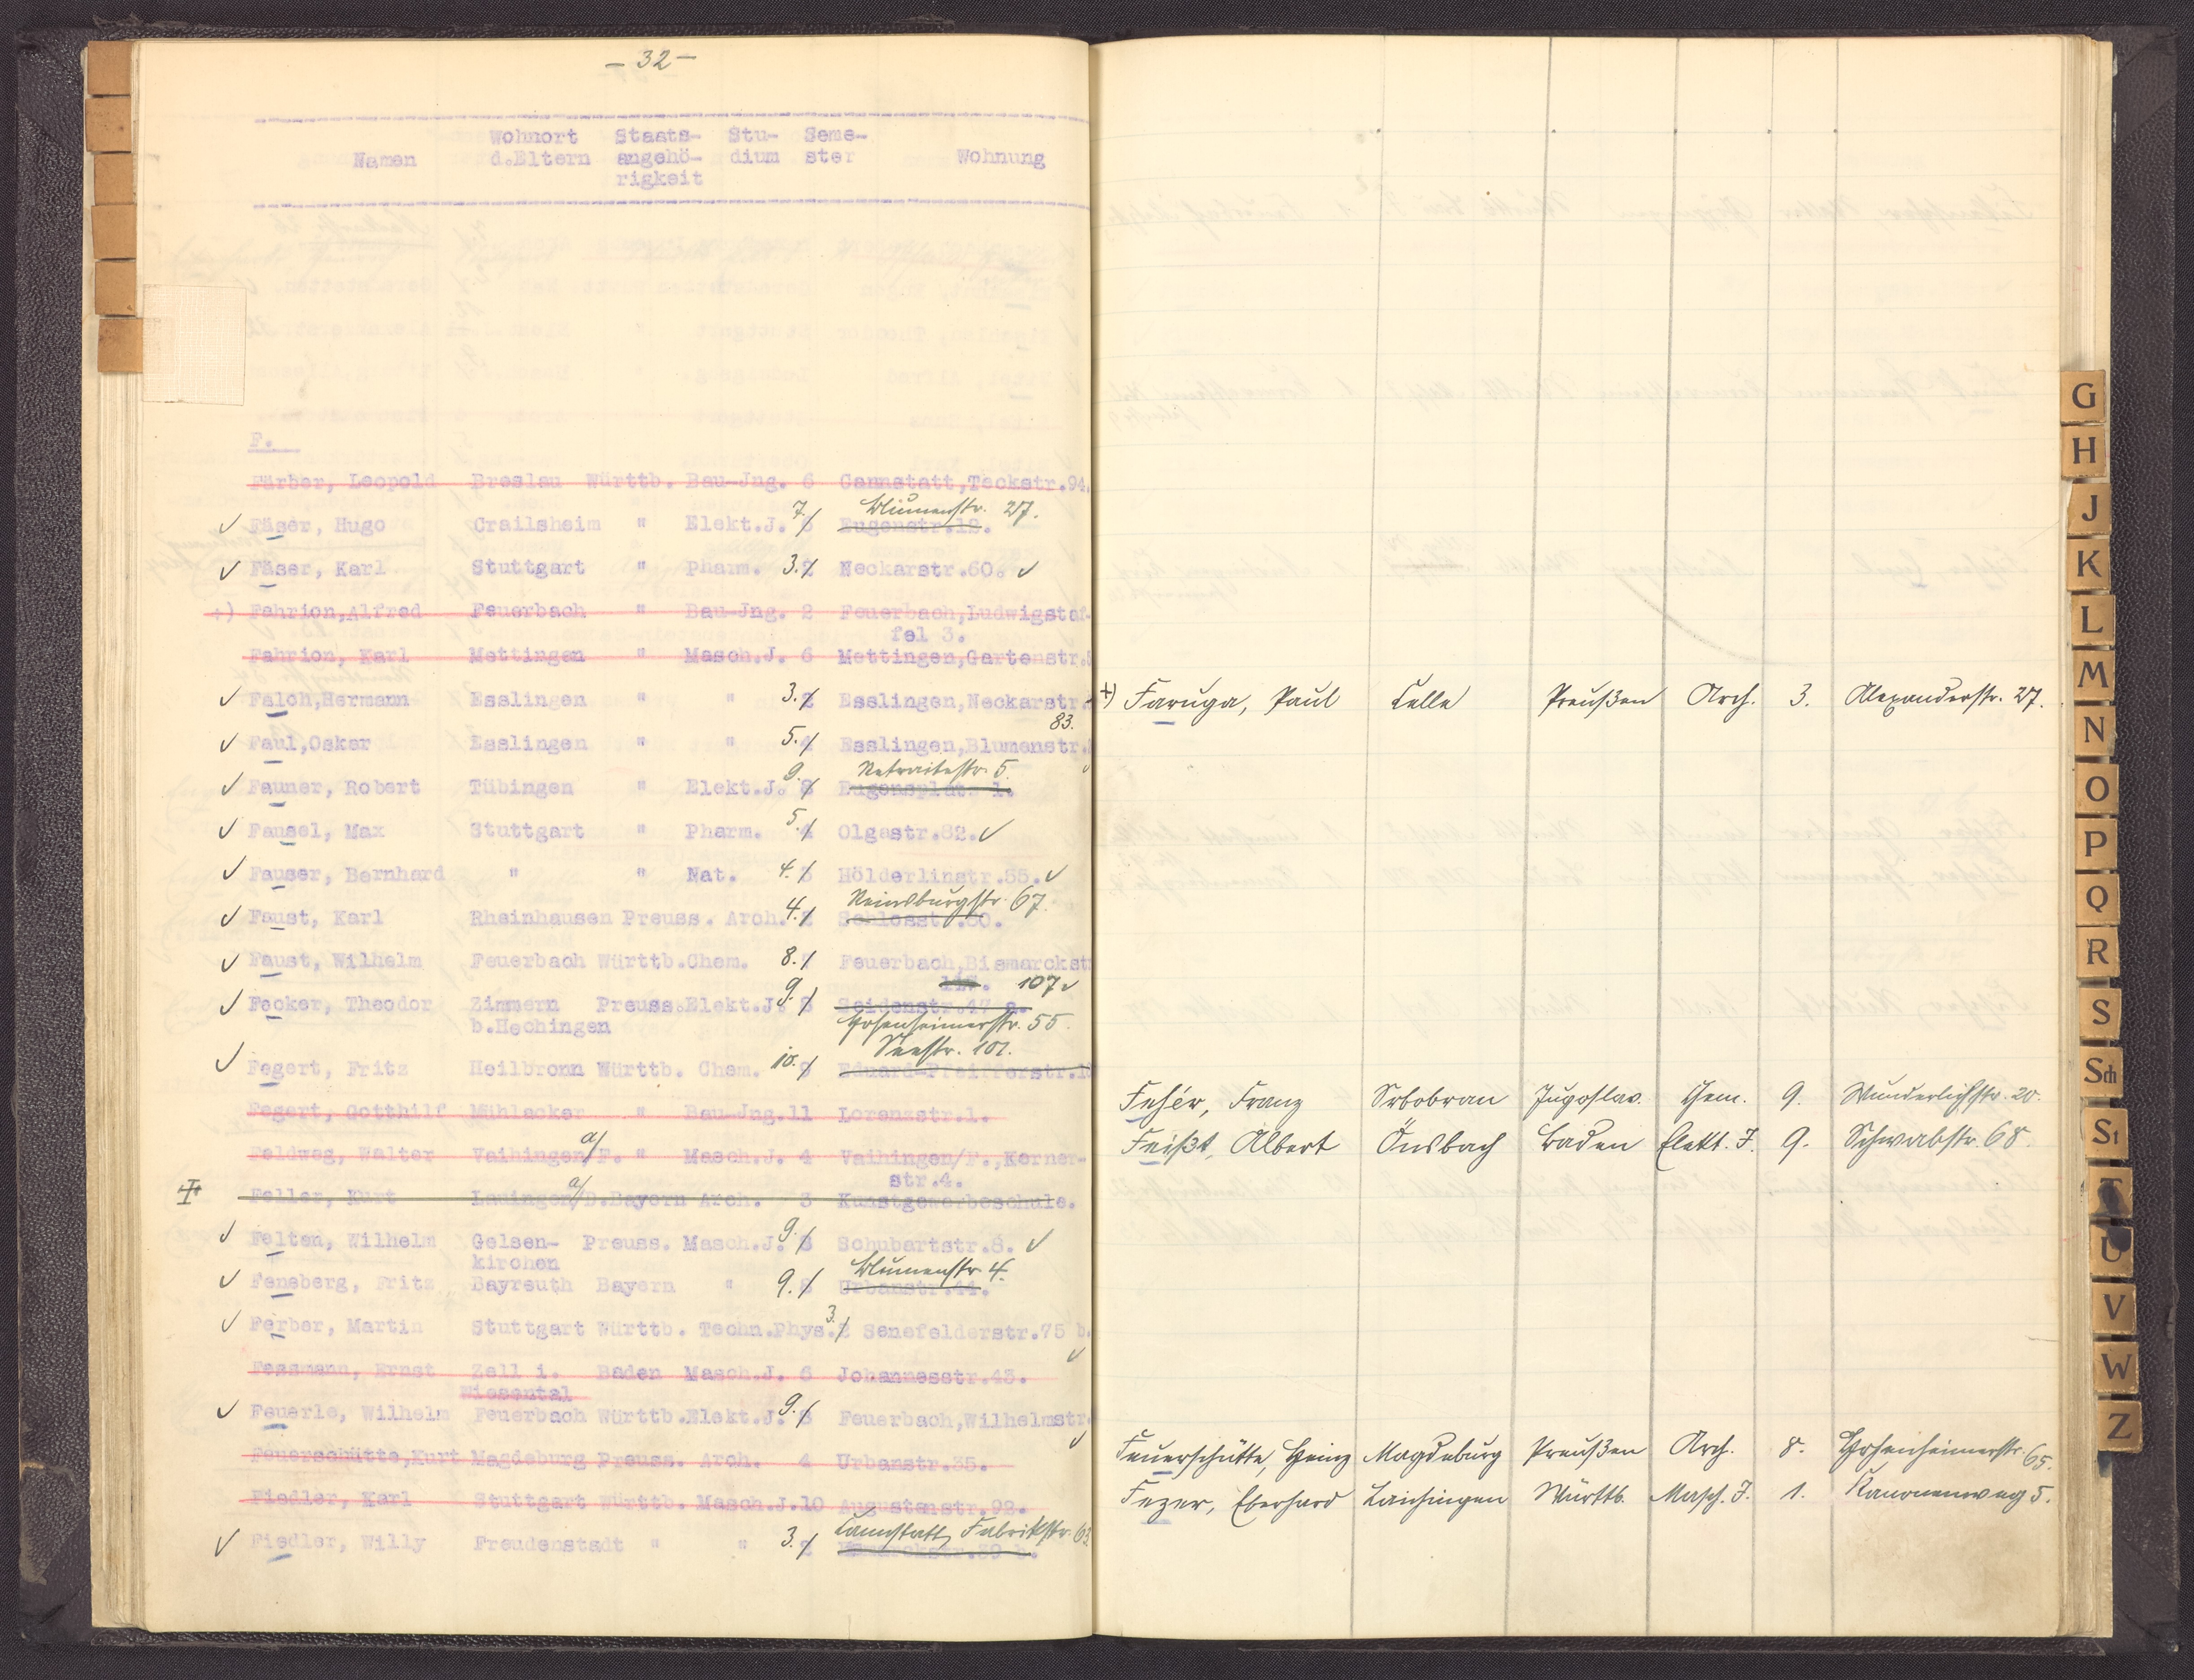 - 32 -
Namen Wohnort d.Eltern Staats- angehö- rigkeit Stu- dium Seme- ster Wohnung
F.
Färber, Leopold Breslau Württb. Bau-Jng. 6 Cannstatt,Teckstr.94.
Blumenstr. 27.
Fäser, Hugo Crailsheim " Elekt.J. 7. Eugenstr.12.
Fäser, Karl Stuttgart " Pharm. 3. 2 Neckarstr.60.
+) Fahrion,Alfred Feuerbach " Bau-Jng. 2 Feuerbach,Ludwigstaf-
fel 3.
Fahrion, Karl Mettingen " Masch.J. 6 Mettingen,Gartenstr.
Falch,Hermann Esslingen " " 3. 2 Esslingen,Neckarstr.
83.
Faul,Oskar Esslingen " " 5. 4 Esslingen,Blumenstr.
Retraitestr. 5.
Fauner, Robert Tübingen " Elekt.J. 9. 8 Eugensplatz 1.
Fausel, Max Stuttgart " Pharm. 5. 4 Olgastr.82.
Fauser, Bernhard " " Nat. 4. 3 Hölderlinstr.55.
Reinsburgstr. 67.
Faust, Karl Rheinhausen Preuss. Arch. 4. 2 Schlosstr.60.
Faust, Wilhelm Feuerbach Württb.Chem. 8. Feuerbach,Bismarckstr
107
Fecker, Theodor Zimmern Preuss.Elekt.J. 9. 8 Seidenstr.47 a.
b.Hechingen Hohenheimerstr. 55.
Seestr. 101.
Fegert, Fritz Heilbronn Württb. Chem. 10. 9 Eduard-Pfeifferstr.
Fegert, Gotthilf Mühlacker " Bau-Jng.11 Lorenzstr.1.
Feldweg, Walter Vaihingen a/F. " Masch.J. 4 Vaihingen/F.,Kerner-
str.4.
Feller, Kurt Lauingen a/D.Bayern Arch. 3 Kunstgewerbeschule.
Felten, Wilhelm Gelsen- Preuss. Masch.J. 9. 8 Schubartstr.8.
kirchen
Blumenstr. 4.
Feneberg, Fritz Bayreuth Bayern " 9. 8 Urbanstr.44.
Ferber, Martin Stuttgart Württb. Techn.Phys. 3. 2 Senefelderstr.75 b.
Fessmann, Ernst Zell i. Baden Masch.J. 6 Johannesstr.43.
Wiesental
Feuerle, Wilhelm Feuerbach Württb.Elekt.J. 9. 8 Feuerbach,Wilhelmstr.
Feuerschütte,Kurt Magdeburg Preuss. Arch. 4 Urbanstr.35.
Fiedler, Karl Stuttgart Württb. Masch.J.10 Augustenstr.92.
Cannstatt, Fabrikstr. 63.
Fiedler, Willy Freudenstadt " " 3. 2 Bismarckstr.39 b.
+) Faruga, Paul Celle Preußen Arch. 3. Alexanderstr. 27.
Fehér, Franz Srbobran Jugoslav. Chem. 9. Wunderlichstr. 20.
Feißt, Albert Önsbach Baden Elekt. J. 9. Schwabstr. 68.
Feuerschütte, Heinz Magdeburg Preußen Arch. 8. Hohenheimerstr. 65.
Fezer, Eberhard Laichingen Württb. Masch. J. 1. Kanonenweg 5.
G
H
J
K
L
M
N
O
P
Q
R
S
Sch
St
T
U
V
W
Z